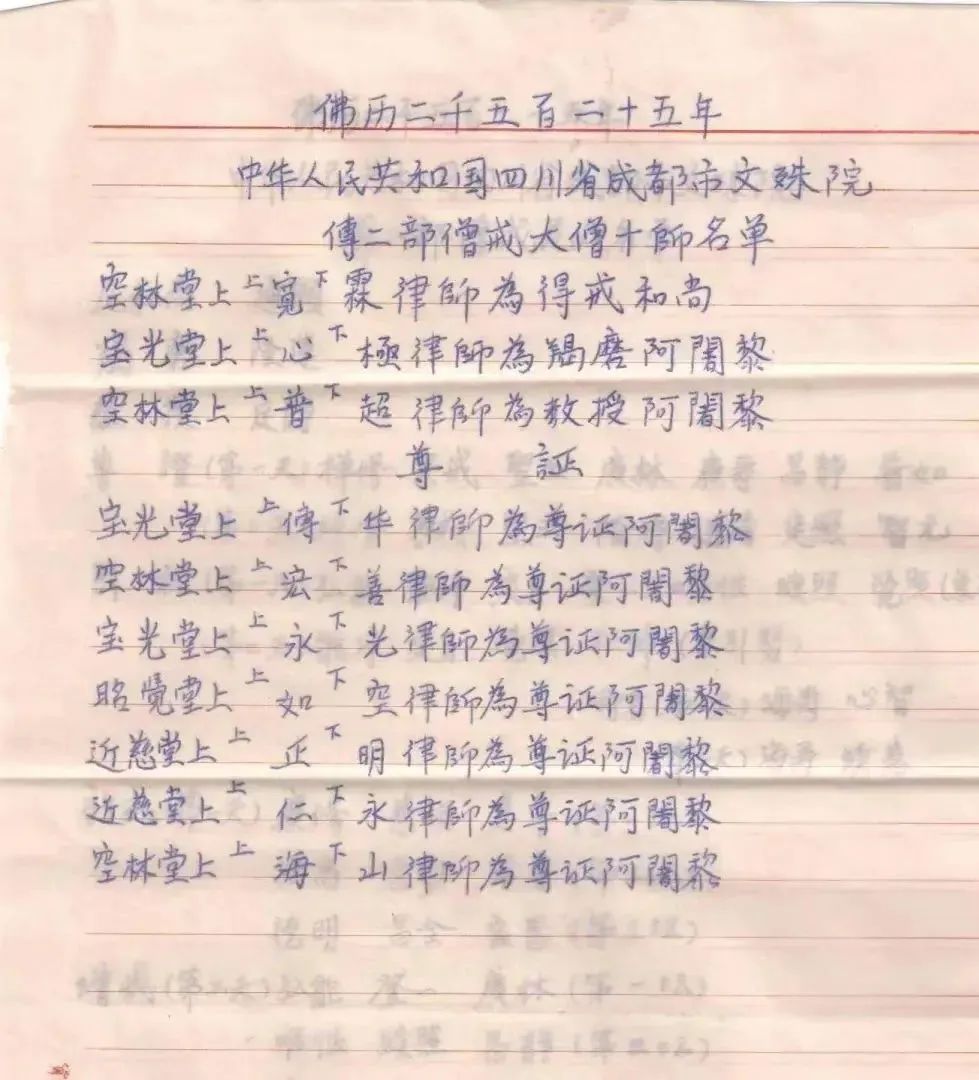 佛历二千五百二十五年
中华人民共和国四川省成都市文殊院
傳二部僧戒大僧十師名单
空林堂上上寬下霖律師為得戒和尚
宝光堂上上心下極律師為羯磨阿闍黎
空林堂上上普下超律師為教授阿闍黎
尊 証
宝光堂上上傳下华律師為尊证阿闍黎
空林堂上上宏下善律師為尊证阿闍黎
宝光堂上上永下光律師為尊证阿闍黎
昭覺堂上上如下空律師為尊证阿闍黎
近慈堂上上正下明律師為尊证阿闍黎
近慈堂上上仁下永律師為尊证阿闍黎
空林堂上上海下山律師為尊证阿闍黎